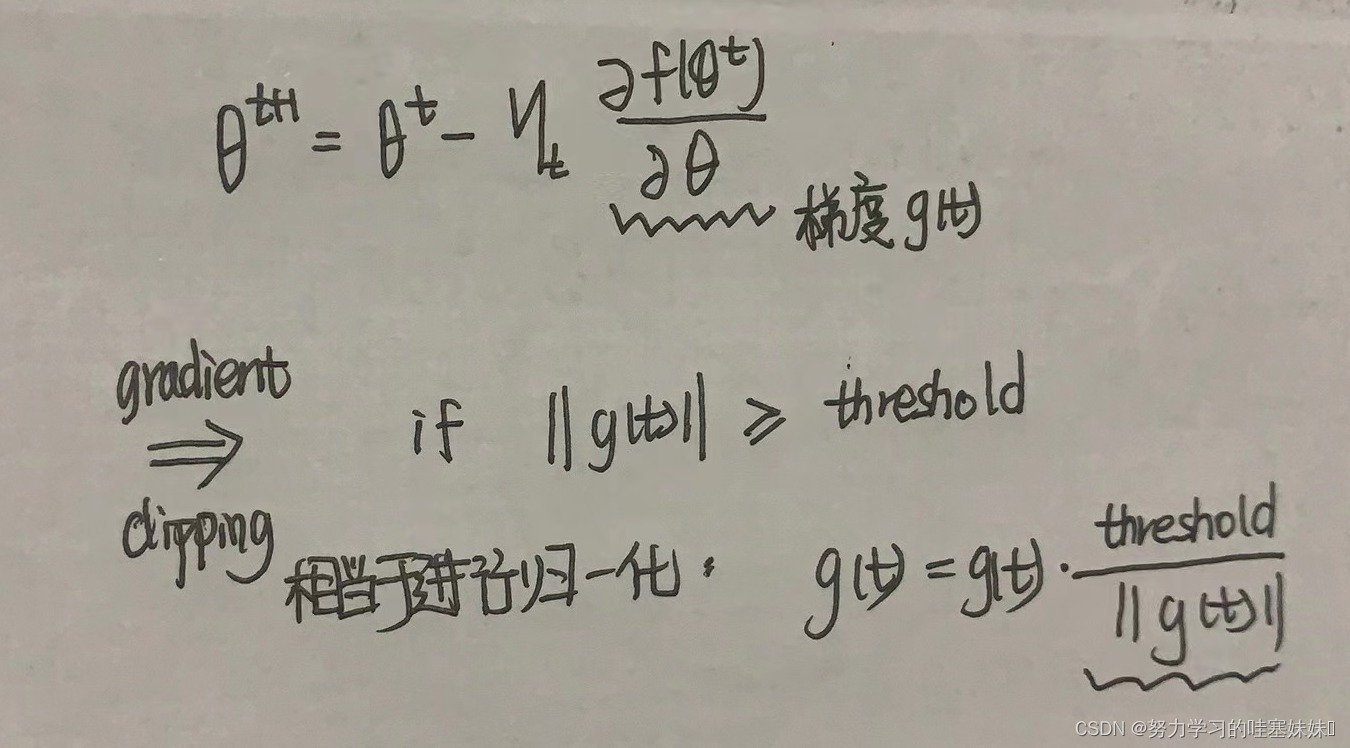 θ^{t+1} = θ^t - η_t ∂f(θ^t)/∂θ
梯度 g(t)
gradient clipping ⇒ if ||g(t)|| ⩾ threshold
相当于进行归一化: g(t) = g(t) · threshold/||g(t)||
CSDN @努力学习的哇塞妹妹